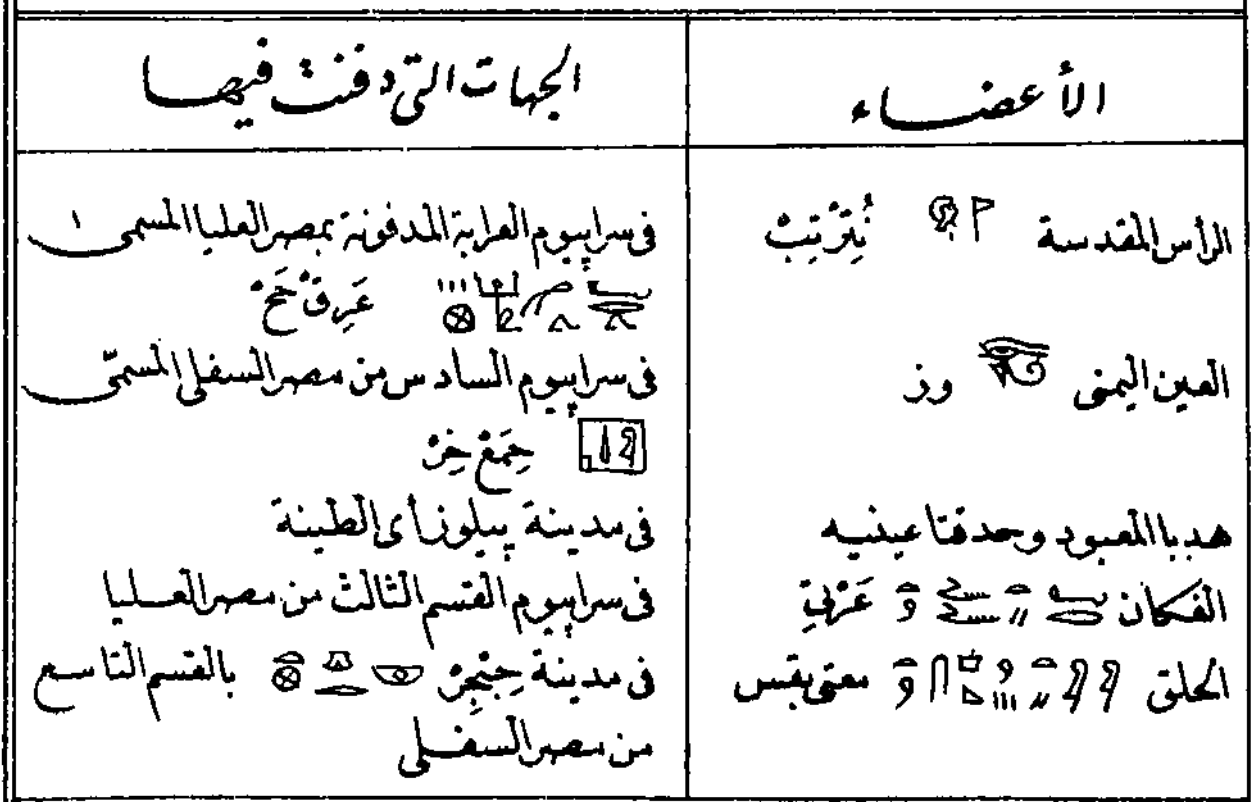 الأعضاء
الجهات التى دفنت فيها
الرأس المقدسة نُتِرْتِبْ
فى سراپيوم العرابة المدفونة بمصر العليا المسمى
عَرِقْ حَحْ
العين اليمنى وز
فى سراپيوم السادس من مصر السفلى المسمّى
حِمَعْ خِرْ
هدبا المعبود وحدقتا عينيه
فى مدينة پيلوز أى الطينة
الفكان عَرْتِ
فى سراپيوم القسم الثالث من مصر العليا
الحلق معتى بقس
فى مدينة حِبْجِرْ بالقسم التاسع
من مصر السفلى